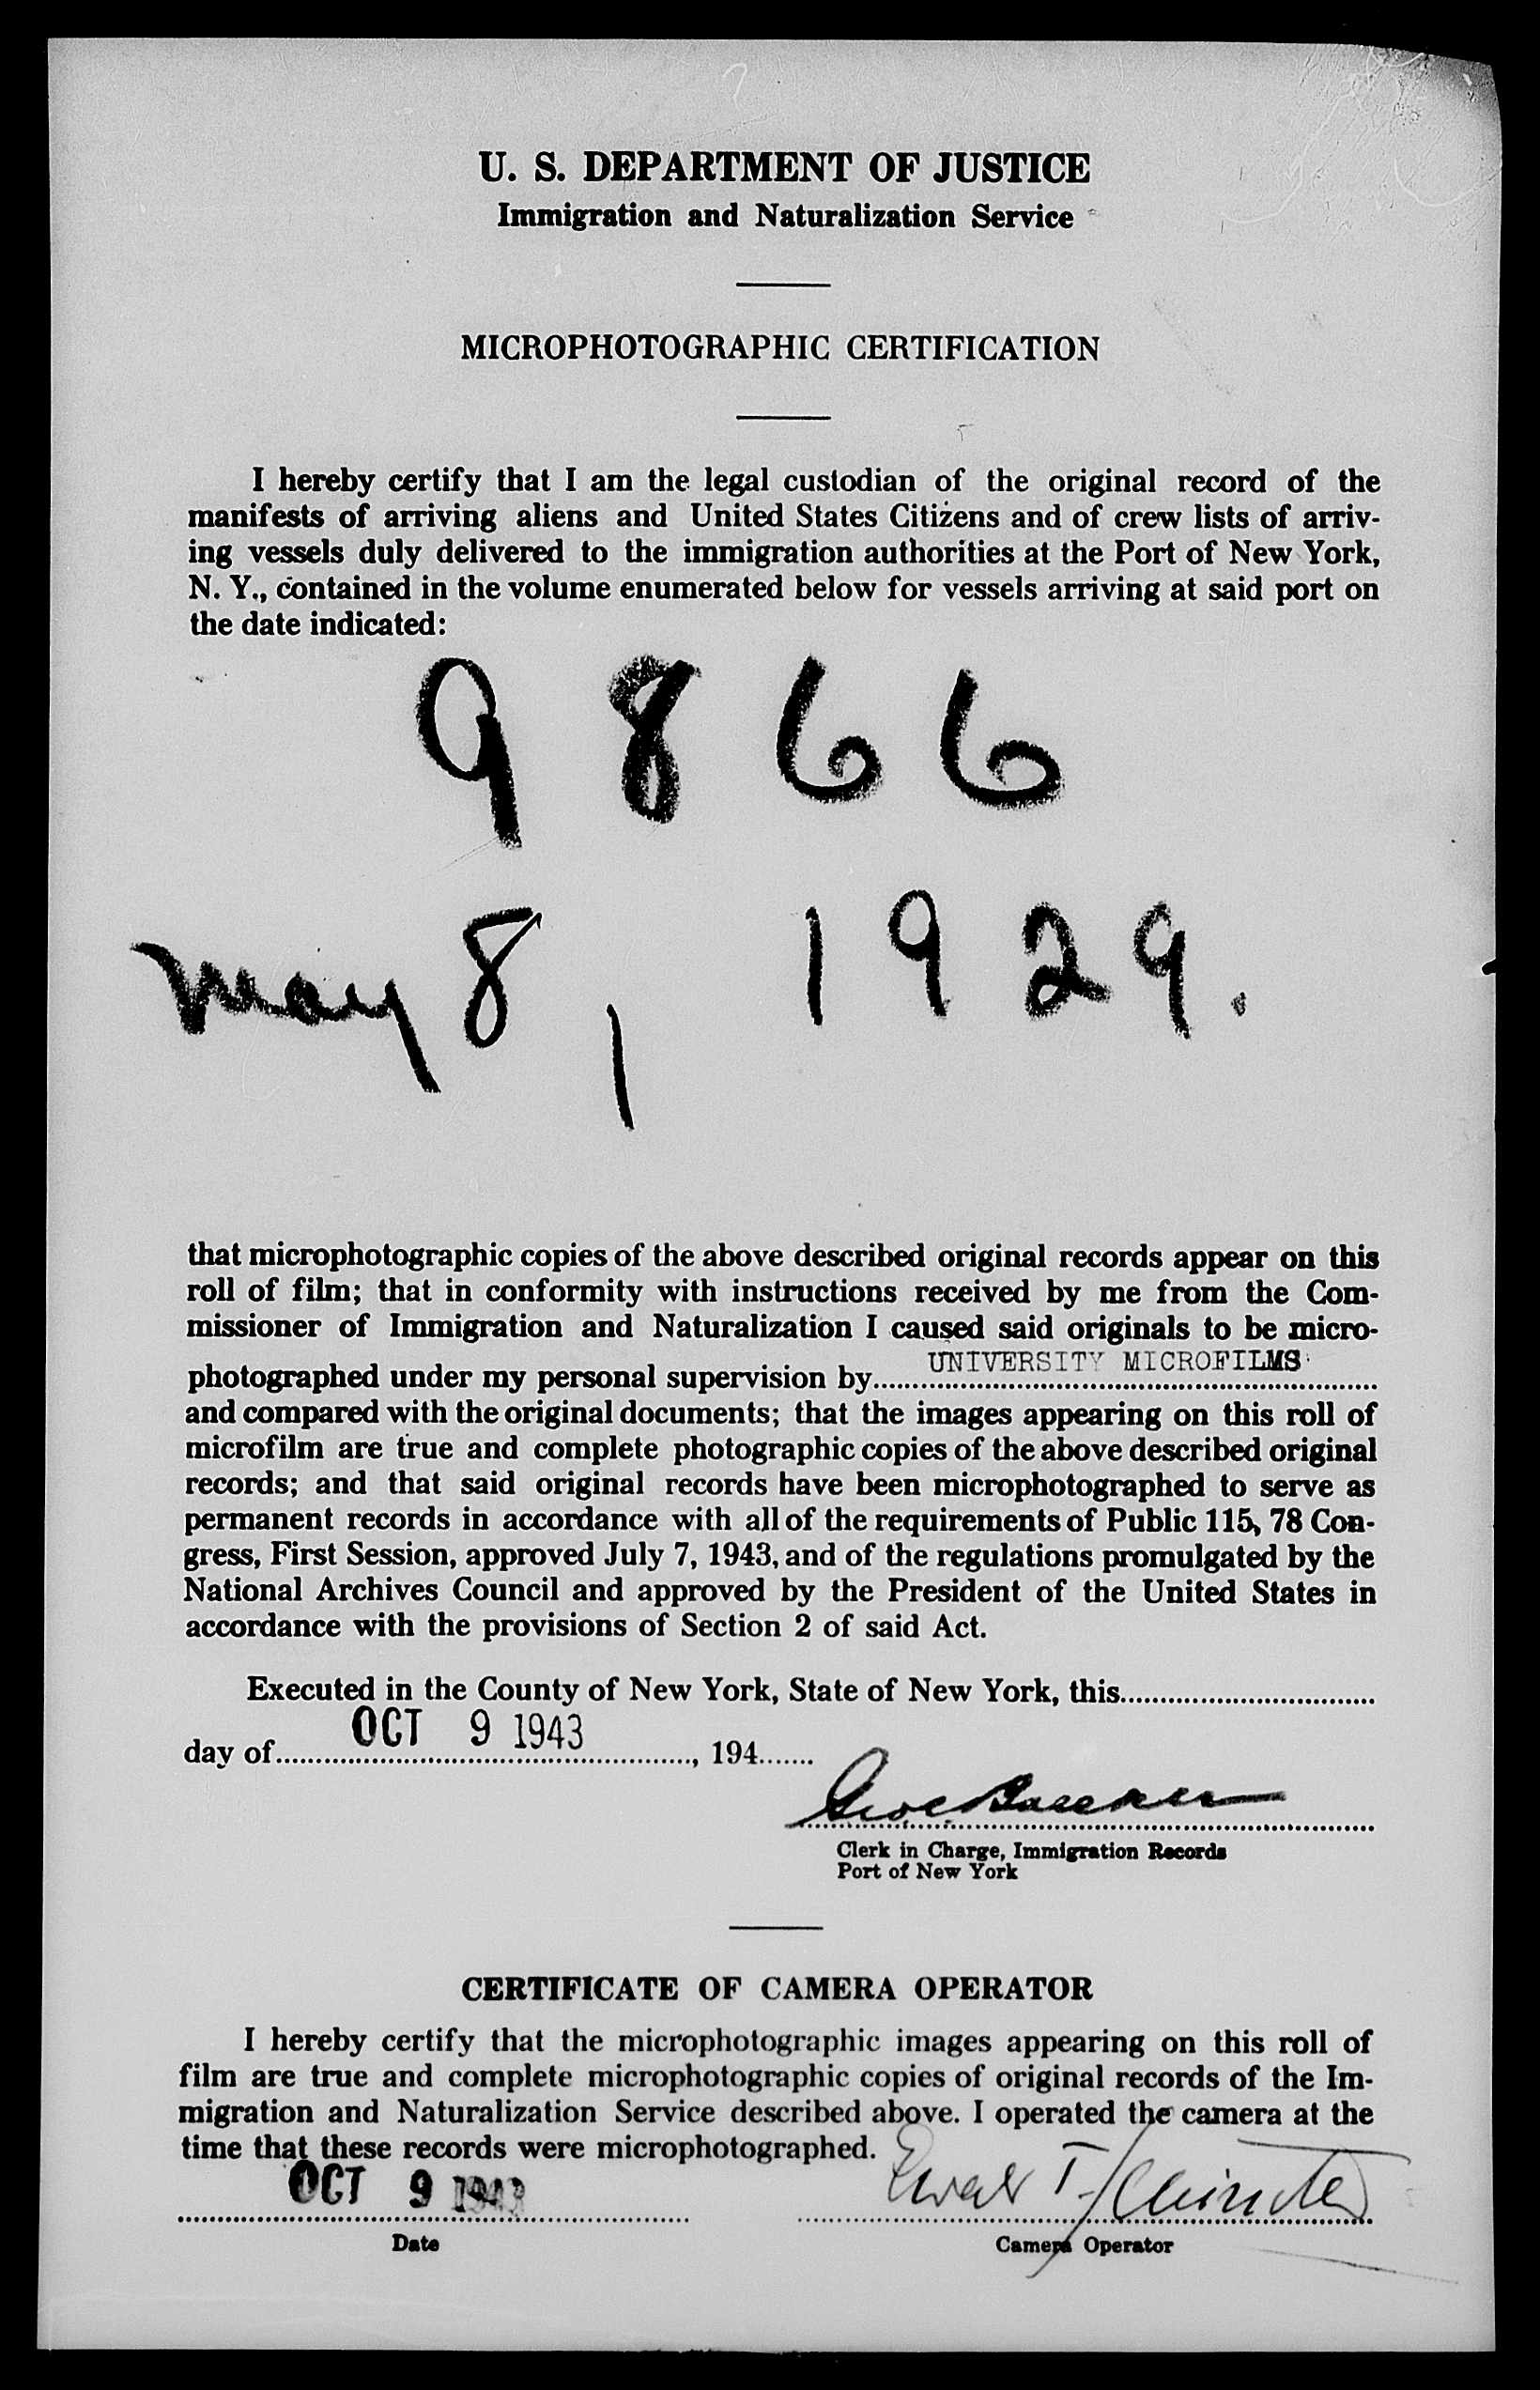 U. S. DEPARTMENT OF JUSTICE
Immigration and Naturalization Service
MICROPHOTOGRAPHIC CERTIFICATION
I hereby certify that I am the legal custodian of the original record of the
manifests of arriving aliens and United States Citizens and of crew lists of arriv-
ing vessels duly delivered to the immigration authorities at the Port of New York,
N. Y., contained in the volume enumerated below for vessels arriving at said port on
the date indicated:
9866
May 8, 1929.
that microphotographic copies of the above described original records appear on this
roll of film; that in conformity with instructions received by me from the Com-
missioner of Immigration and Naturalization I caused said originals to be micro-
photographed under my personal supervision by UNIVERSITY MICROFILMS
and compared with the original documents; that the images appearing on this roll of
microfilm are true and complete photographic copies of the above described original
records; and that said original records have been microphotographed to serve as
permanent records in accordance with all of the requirements of Public 115, 78 Con-
gress, First Session, approved July 7, 1943, and of the regulations promulgated by the
National Archives Council and approved by the President of the United States in
accordance with the provisions of Section 2 of said Act.
Executed in the County of New York, State of New York, this
day of OCT 9 1943, 194
Clerk in Charge, Immigration Records
Port of New York
CERTIFICATE OF CAMERA OPERATOR
I hereby certify that the microphotographic images appearing on this roll of
film are true and complete microphotographic copies of original records of the Im-
migration and Naturalization Service described above. I operated the camera at the
time that these records were microphotographed.
OCT 9 1943
Date
Camera Operator